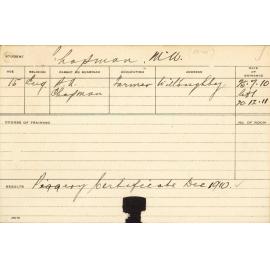 STUDENT Chapman, M.W.
AGE RELIGION PARENT OR GUARDIAN OCCUPATION ADDRESS DATE OF ENTRANCE
15 Eng Chapman Farmer Willoughby 18.7.10
left
20.12.11
COURSE OF TRAINING NO. OF ROOM
RESULTS Piggery Certificate Dec 1910.